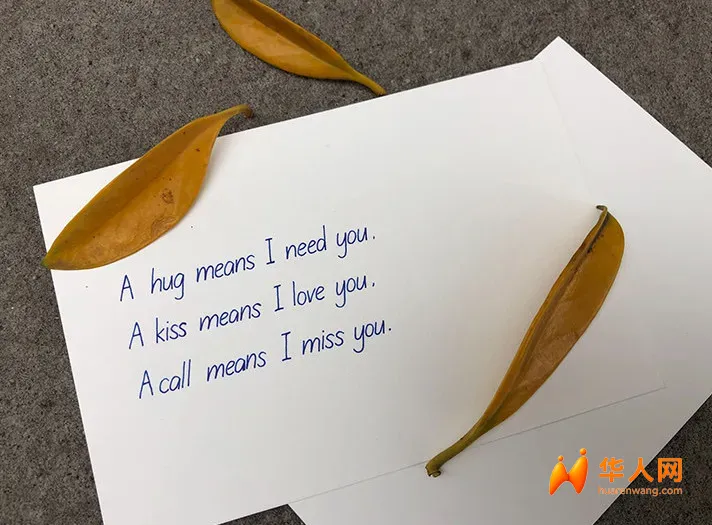 A hug means I need you.
A kiss means I love you.
A call means I miss you.
华人网
huarenwang.com